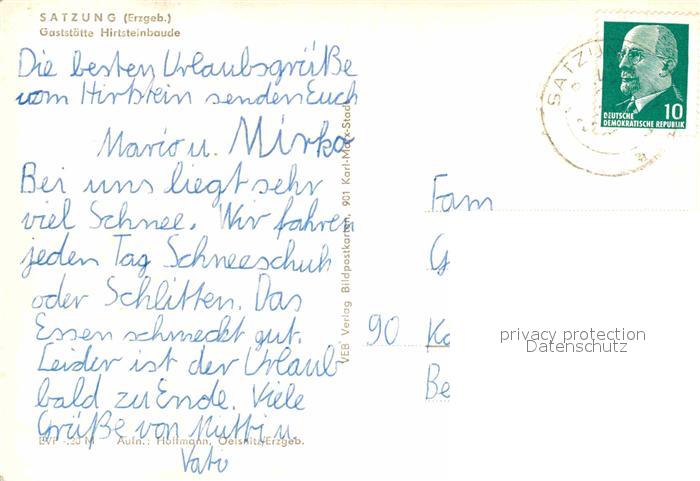 SATZUNG (Erzgeb.)
Gaststätte Hirtsteinbaude
Die besten Urlaubsgrüße
vom Hirtstein senden Euch
Mario u. Mirko
Bei uns liegt sehr
viel Schnee. Wir fahren
jeden Tag Schneeschuh
oder Schlitten. Das
Essen schmeckt gut.
Leider ist der Urlaub
bald zu Ende. Viele
Grüße von Mutti u
Vati
EVP -.20 M Aufn.: Hoffmann, Oelsnitz/Erzgeb.
VEB Verlag Bildpostkarten, 901 Karl-Marx-Stadt
SATZU
10
DEUTSCHE
DEMOKRATISCHE REPUBLIK
Fam
G
90 Ka
Be
privacy protection
Datenschutz